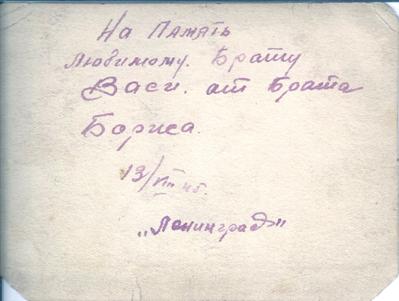 На Память
Любимому. Брату
Васи. от Брата
Бориса.
13/VIII 46.
„Ленинград"